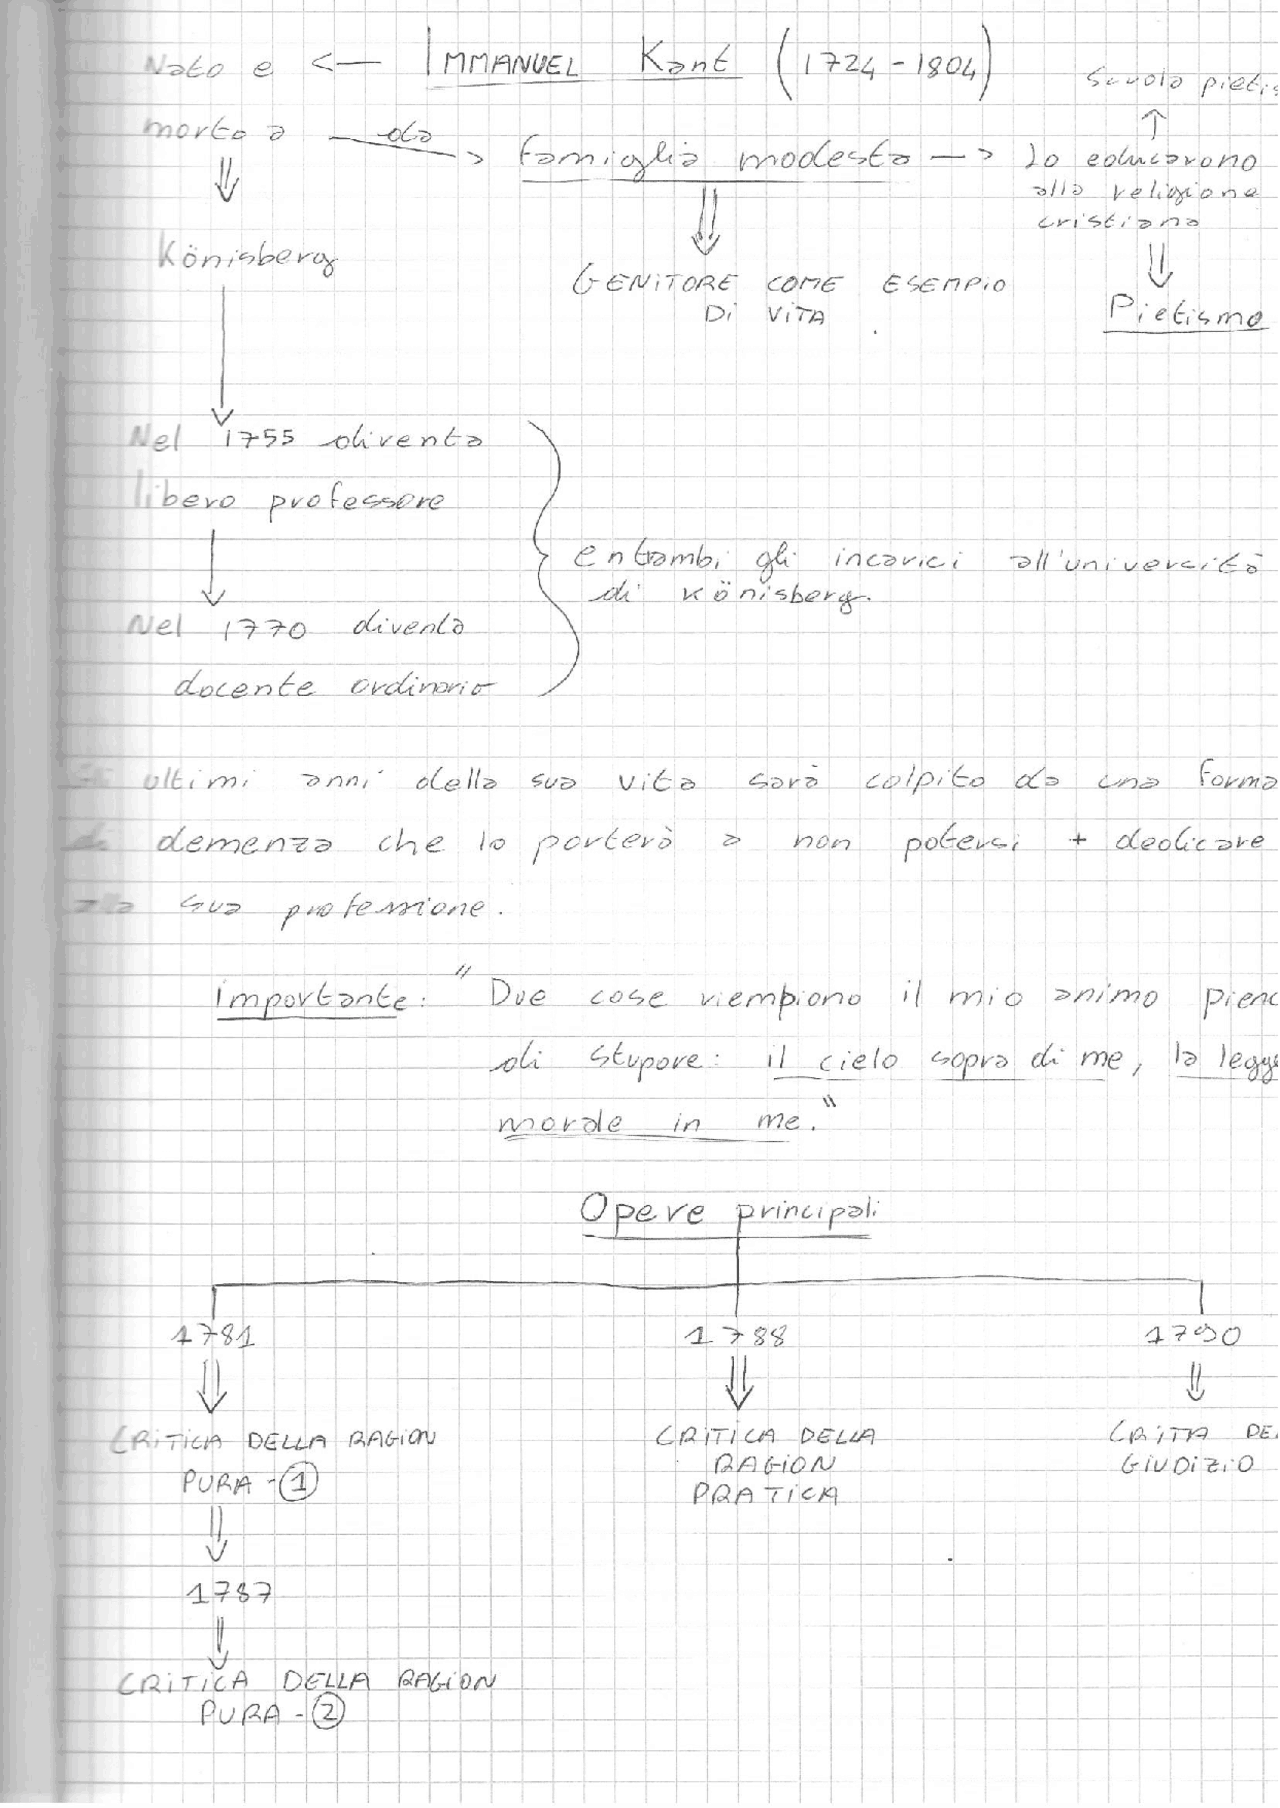 Nato e <— IMMANUEL Kant (1724-1804)
morto a
da
famiglia modesta —> lo educarono
alla religione
cristiana
Scuola pietis
Pietismo
GENITORE COME ESEMPIO
DI VITA
Könisberg
Nel 1755 diventa
libero professore
Nel 1770 diventa
docente ordinario
entambi gli incarici all'università
di Könisberg.
Gli ultimi anni della sua vita sarà colpito da una forma
di demenza che lo porterà a non potersi + dedicare
alla sua professione.
Importante: "Due cose riempiono il mio animo pieno
di stupore: il cielo sopra di me, la legge
morale in me."
Opere principali
1781 1788 1790
CRITICA DELLA RAGION
PURA - 1
1787
CRITICA DELLA RAGION
PURA - 2
CRITICA DELLA
RAGION
PRATICA
CRITA DE
GIUDIZIO